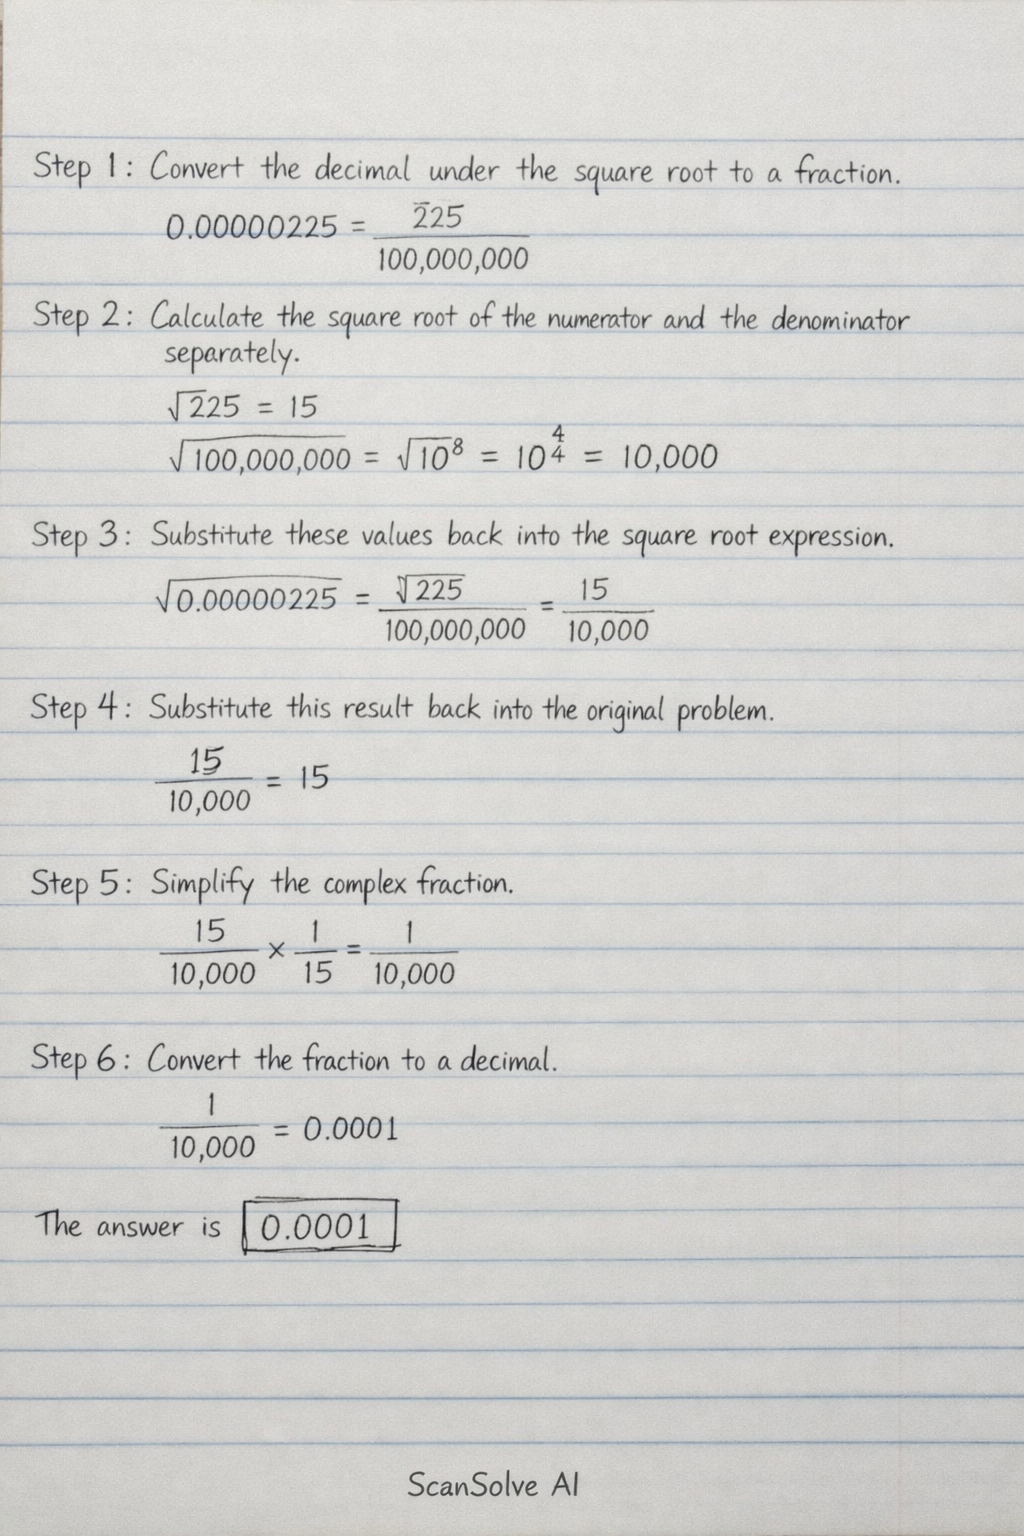 Step 1: Convert the decimal under the square root to a fraction.
0.00000225 = 225/100,000,000
Step 2: Calculate the square root of the numerator and the denominator
separately.
√225 = 15
√100,000,000 = √10⁸ = 10^4/4 = 10,000
Step 3: Substitute these values back into the square root expression.
√0.00000225 = √225/100,000,000 = 15/10,000
Step 4: Substitute this result back into the original problem.
15/10,000 = 15
Step 5: Simplify the complex fraction.
15/10,000 × 1/15 = 1/10,000
Step 6: Convert the fraction to a decimal.
1/10,000 = 0.0001
The answer is 0.0001
ScanSolve AI